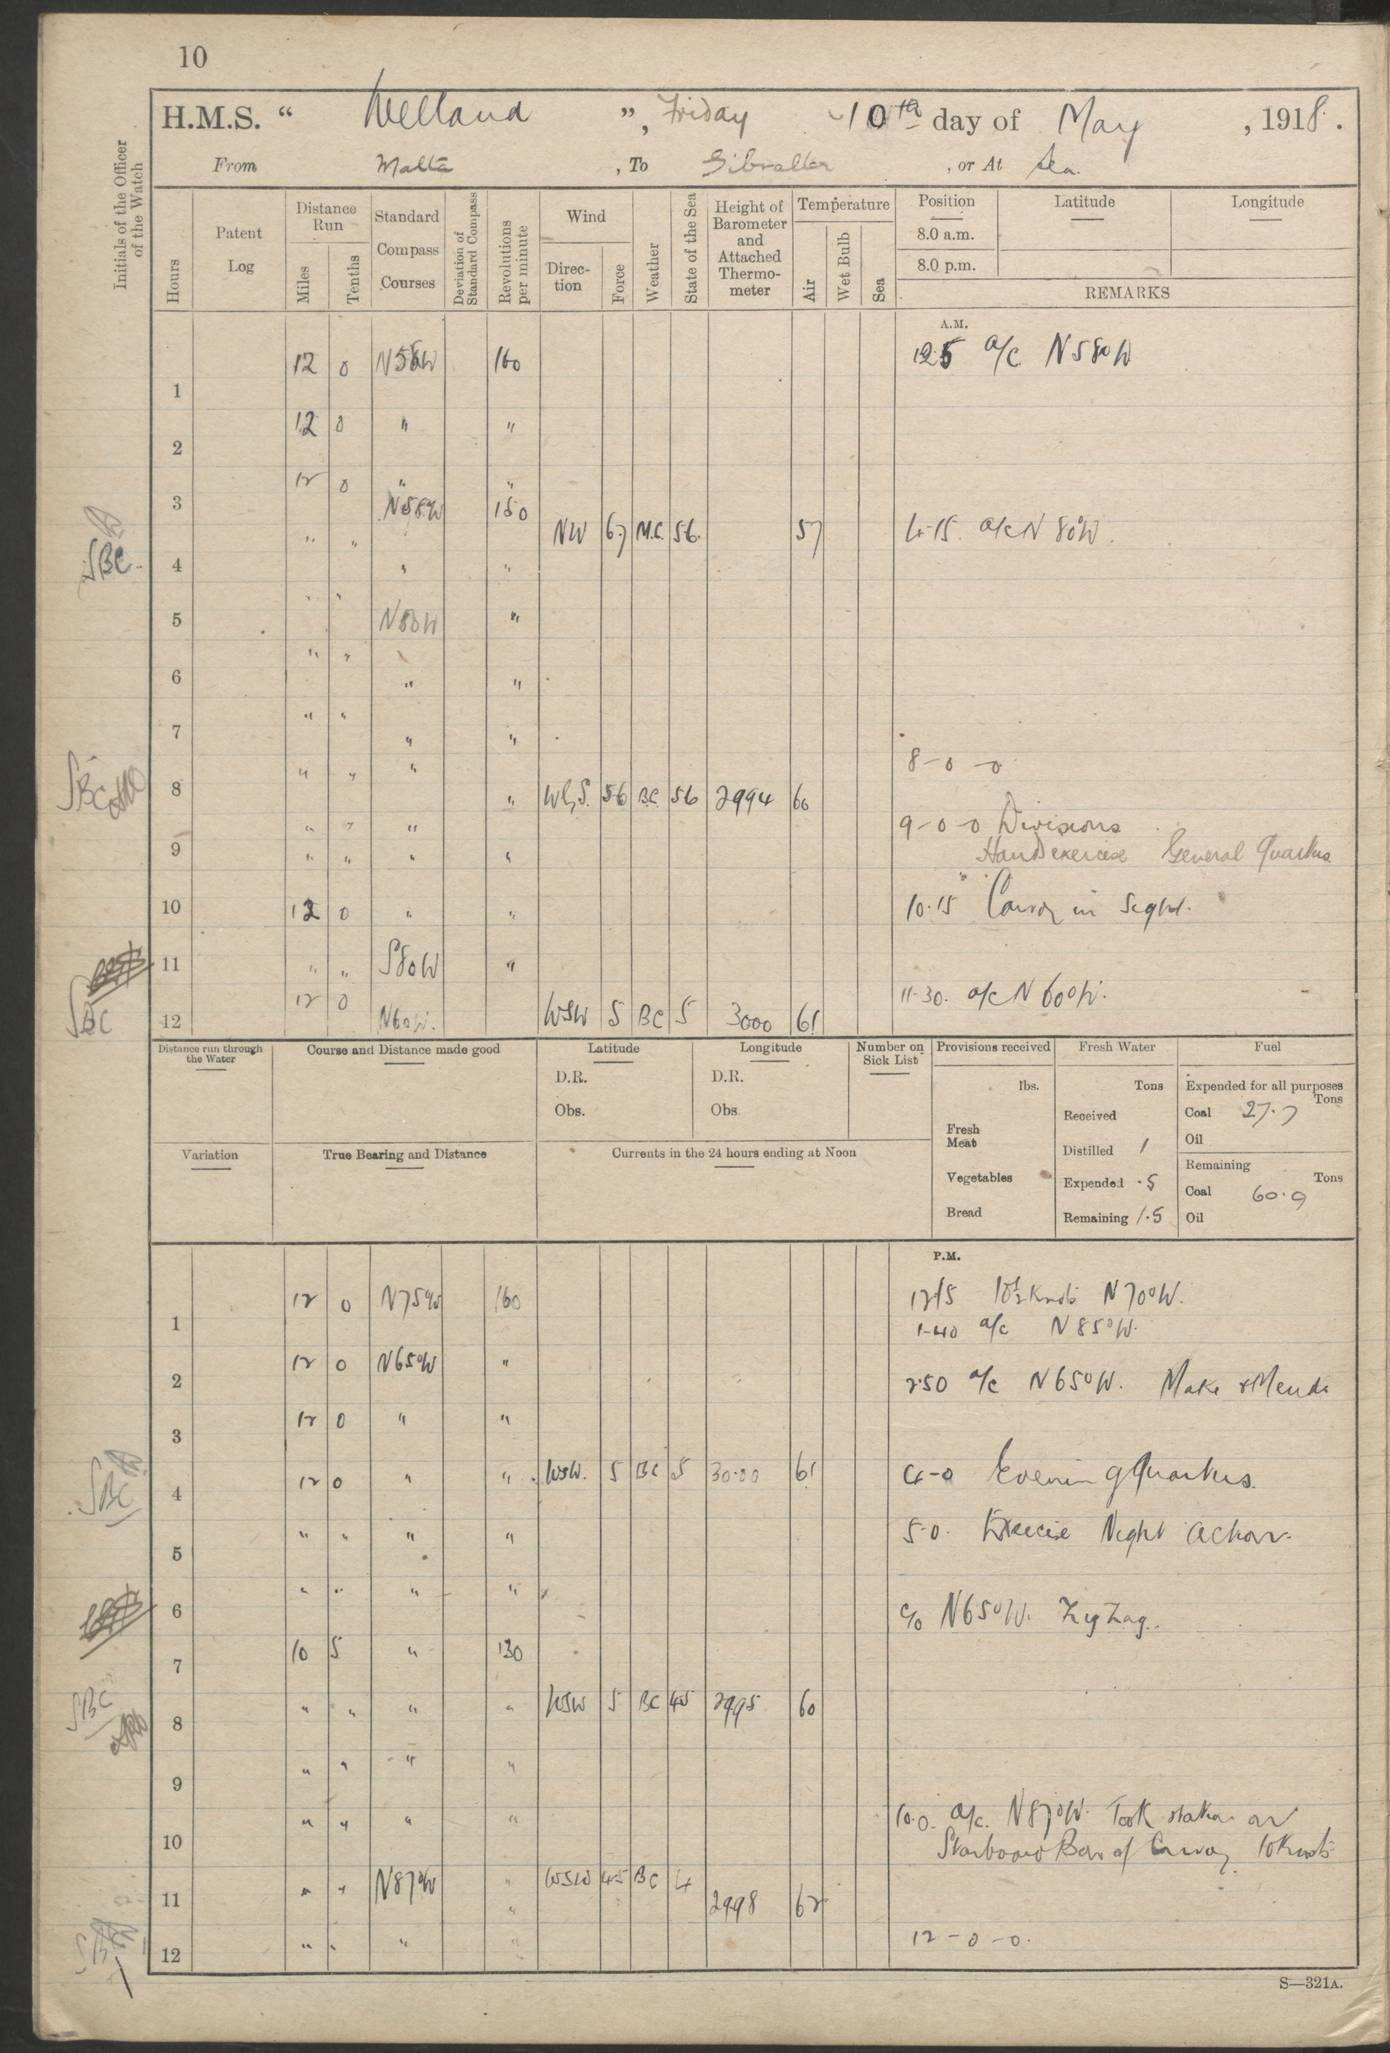 10
H.M.S. “ Welland ”, Friday 10th day of May , 1918.
From Malta , To Gibraltar , or At Sea.
Initials of the Officer of the Watch
Hours
Patent Log
Distance Run
Miles
Tenths
Standard Compass Courses
Deviation of Standard Compass
Revolutions per minute
Wind
Direction
Force
Weather
State of the Sea
Height of Barometer and Attached Thermometer
Temperature
Air
Wet Bulb
Sea
Position
Latitude
Longitude
8.0 a.m.
8.0 p.m.
REMARKS
A.M.
1 12 0 160 12.5 a/c N58°W
2 12 0 " "
3 12 0 " "
SBC 4 " " N58°W 150 NW 67 56 57 4.15 a/c N 80°W.
5 " " " "
6 " " N80W "
7 " " " "
SBC 8 " " " " WbyS. 56 BC 56 2994 60 8-0-0
9 " " " " 9-0-0 Divisions
Hand exercise General Quarters
10 12 0 " " 10.15 Convoy in Sight.
11 " " S80W "
SBC 12 12 0 N60W. WSW 5 BC 5 3000 61 11-30. a/c N 60°W.
Distance run through the Water
Course and Distance made good
Latitude
D.R.
Obs.
Longitude
D.R.
Obs
Number on Sick List
Provisions received
lbs.
Fresh Meat
Vegetables
Bread
Fresh Water
Tons
Received
Distilled 1
Expended .5
Remaining 1.5
Fuel
Expended for all purposes
Tons
Coal 27.7
Oil
Remaining
Tons
Coal 60.9
Oil
Variation
True Bearing and Distance
Currents in the 24 hours ending at Noon
P.M.
1 12 0 N75°W 160 12.15 10½ Knots N70°W.
1-40 a/c N85°W.
2 12 0 N65°W " 2.50 a/c N65°W. Make & Mends
3 12 0 " "
SBC 4 12 0 " " WSW. 5 BC 5 30.00 61 4-0 Evening Quarters.
5 " " " " 5-0. Exercise Night Action.
6 " " " " c/o N65°W. Zig Zag.
7 10 5 " 130
SBC 8 " " " " WSW 5 BC 45 2995 60
9 " " " "
10 " " " " 10.0. a/c. N87°W. Took station on
Starboard Bow of Convoy. 10 Knots
11 " " N87°W " WSW 45 BC 4 2998 62
12 " " " " 12-0-0.
S—321A.